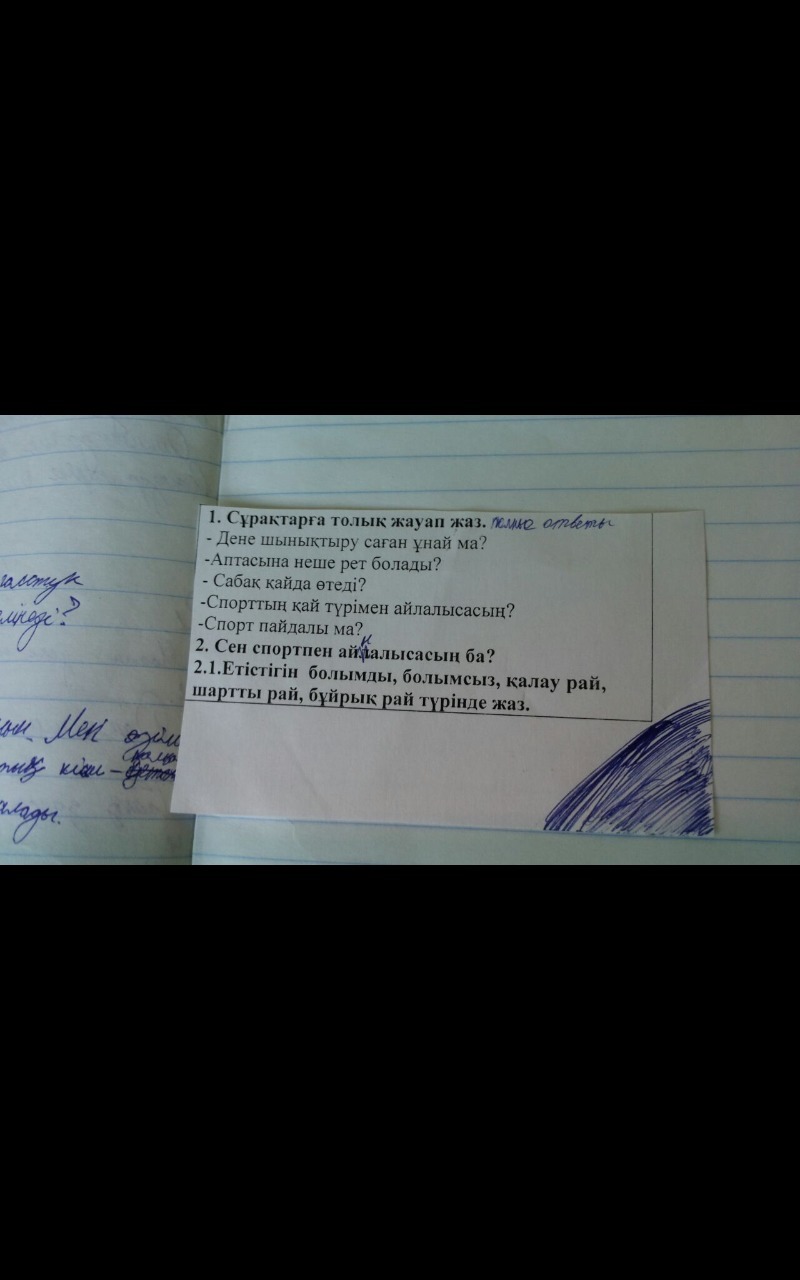 1. Сұрақтарға толық жауап жаз. ответы
- Дене шынықтыру саған ұнай ма?
-Аптасына неше рет болады?
- Сабақ қайда өтеді?
-Спорттың қай түрімен айлалысасың?
-Спорт пайдалы ма?
2. Сен спортпен айналысасың ба?
2.1.Етістігін болымды, болымсыз, қалау рай,
шартты рай, бұйрық рай түрінде жаз.
Мен өзім
кіші -